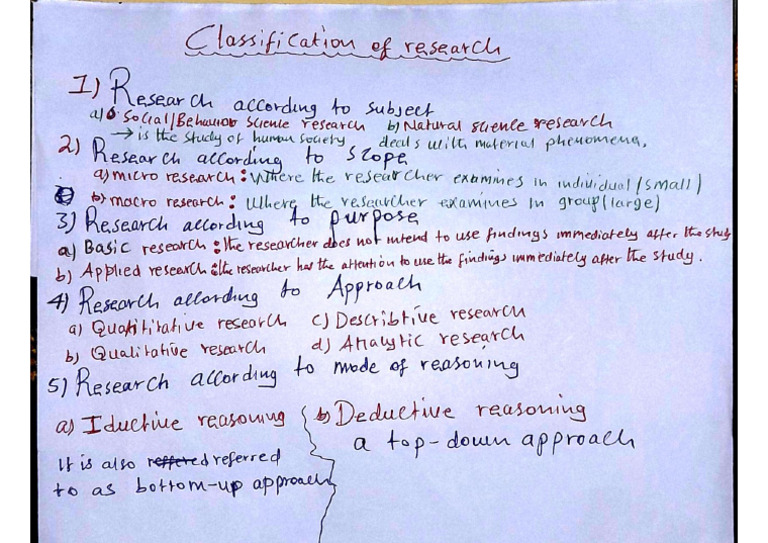 Classification of research
1) Research according to subject
a) Social/Behavior Science research b) Natural science research
→ is the study of human society deals with material phenomena.
2) Research according to Scope
a) micro research: Where the researcher examines in individual (small)
b) macro research: Where the researcher examines in group (large)
3) Research according to purpose
a) Basic research: the researcher does not intend to use findings immediately after the study
b) Applied research: the researcher has the attention to use the findings immediately after the study.
4) Research according to Approach
a) Quatititative research c) Describtive research
b) Qualitative research d) Analytic research
5) Research according to mode of reasoning
a) Iductive reasoning b) Deductive reasoning
a top-down approach
It is also referred
to as bottom-up approach